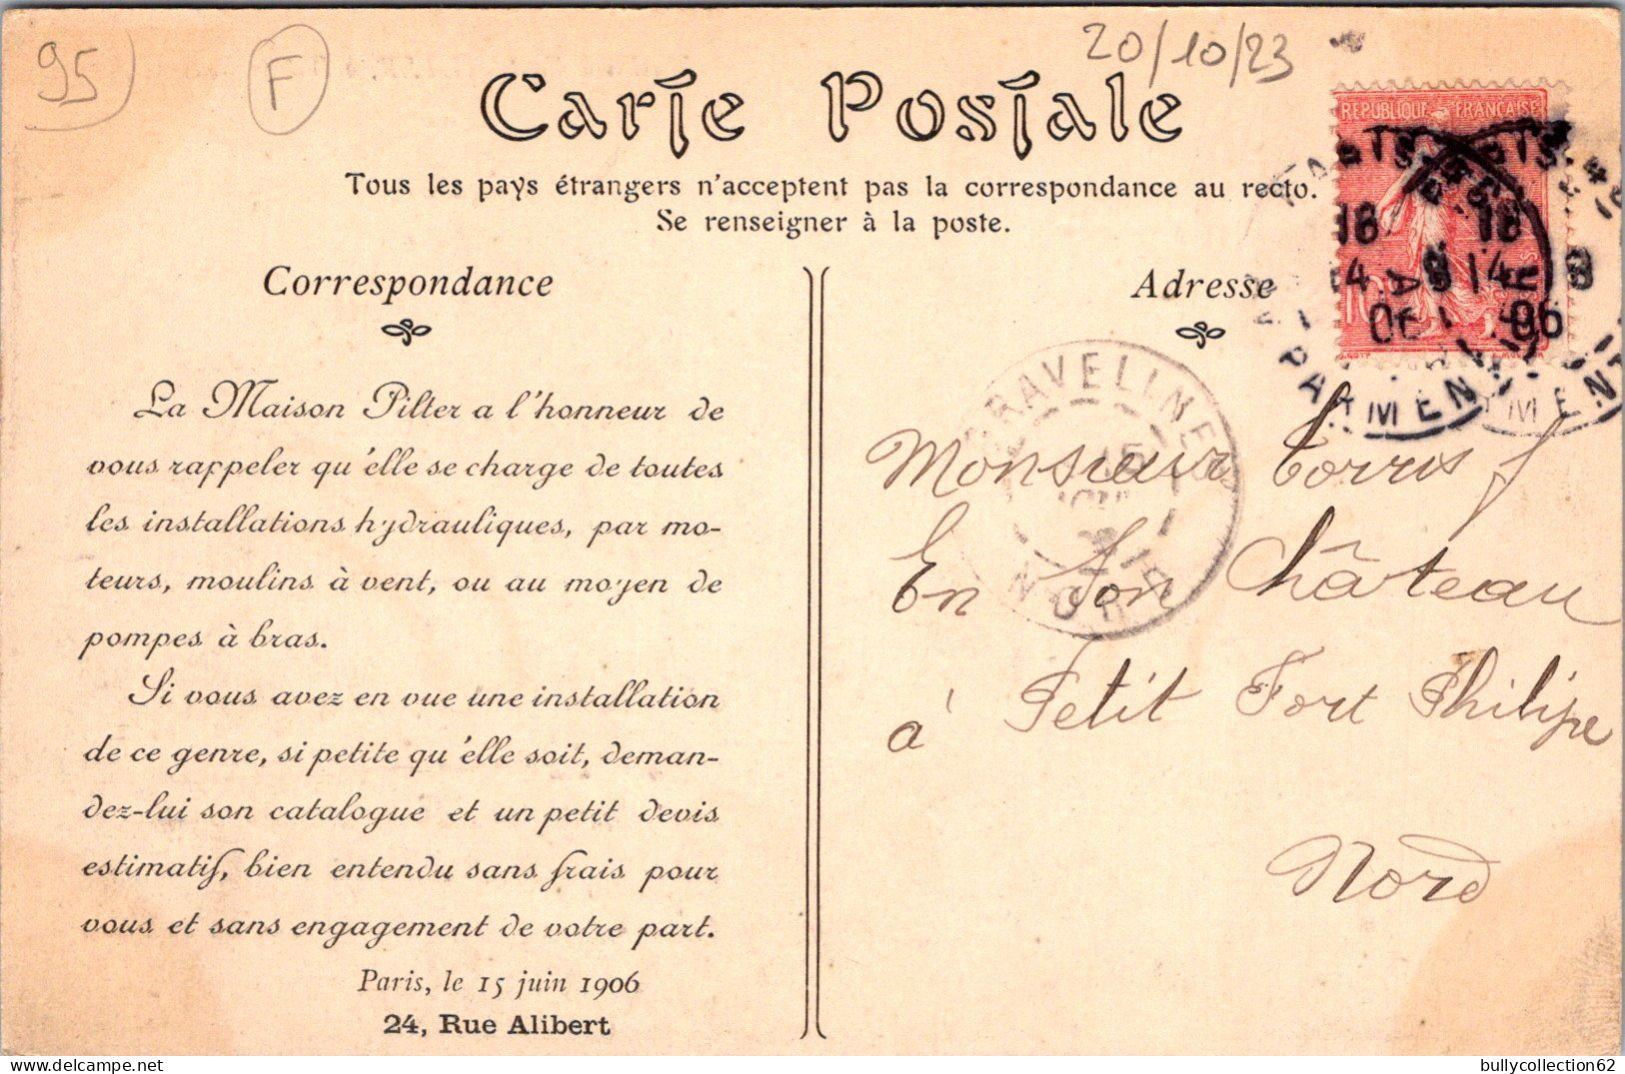 95
F
20/10/23
Carte Postale
Tous les pays étrangers n'acceptent pas la correspondance au recto.
Se renseigner à la poste.
REPUBLIQUE FRANÇAISE
Correspondance
La Maison Pilter a l'honneur de
vous rappeler qu'elle se charge de toutes
les installations hydrauliques, par mo-
teurs, moulins à vent, ou au moyen de
pompes à bras.
Si vous avez en vue une installation
de ce genre, si petite qu'elle soit, deman-
dez-lui son catalogue et un petit devis
estimatif, bien entendu sans frais pour
vous et sans engagement de votre part.
Paris, le 15 juin 1906
24, Rue Alibert
Adresse
GRAVELINES
NORD
Monsieur Torris f
En son Château
à Petit Fort Philipe
Nord
delcampe.net
bullycollection62